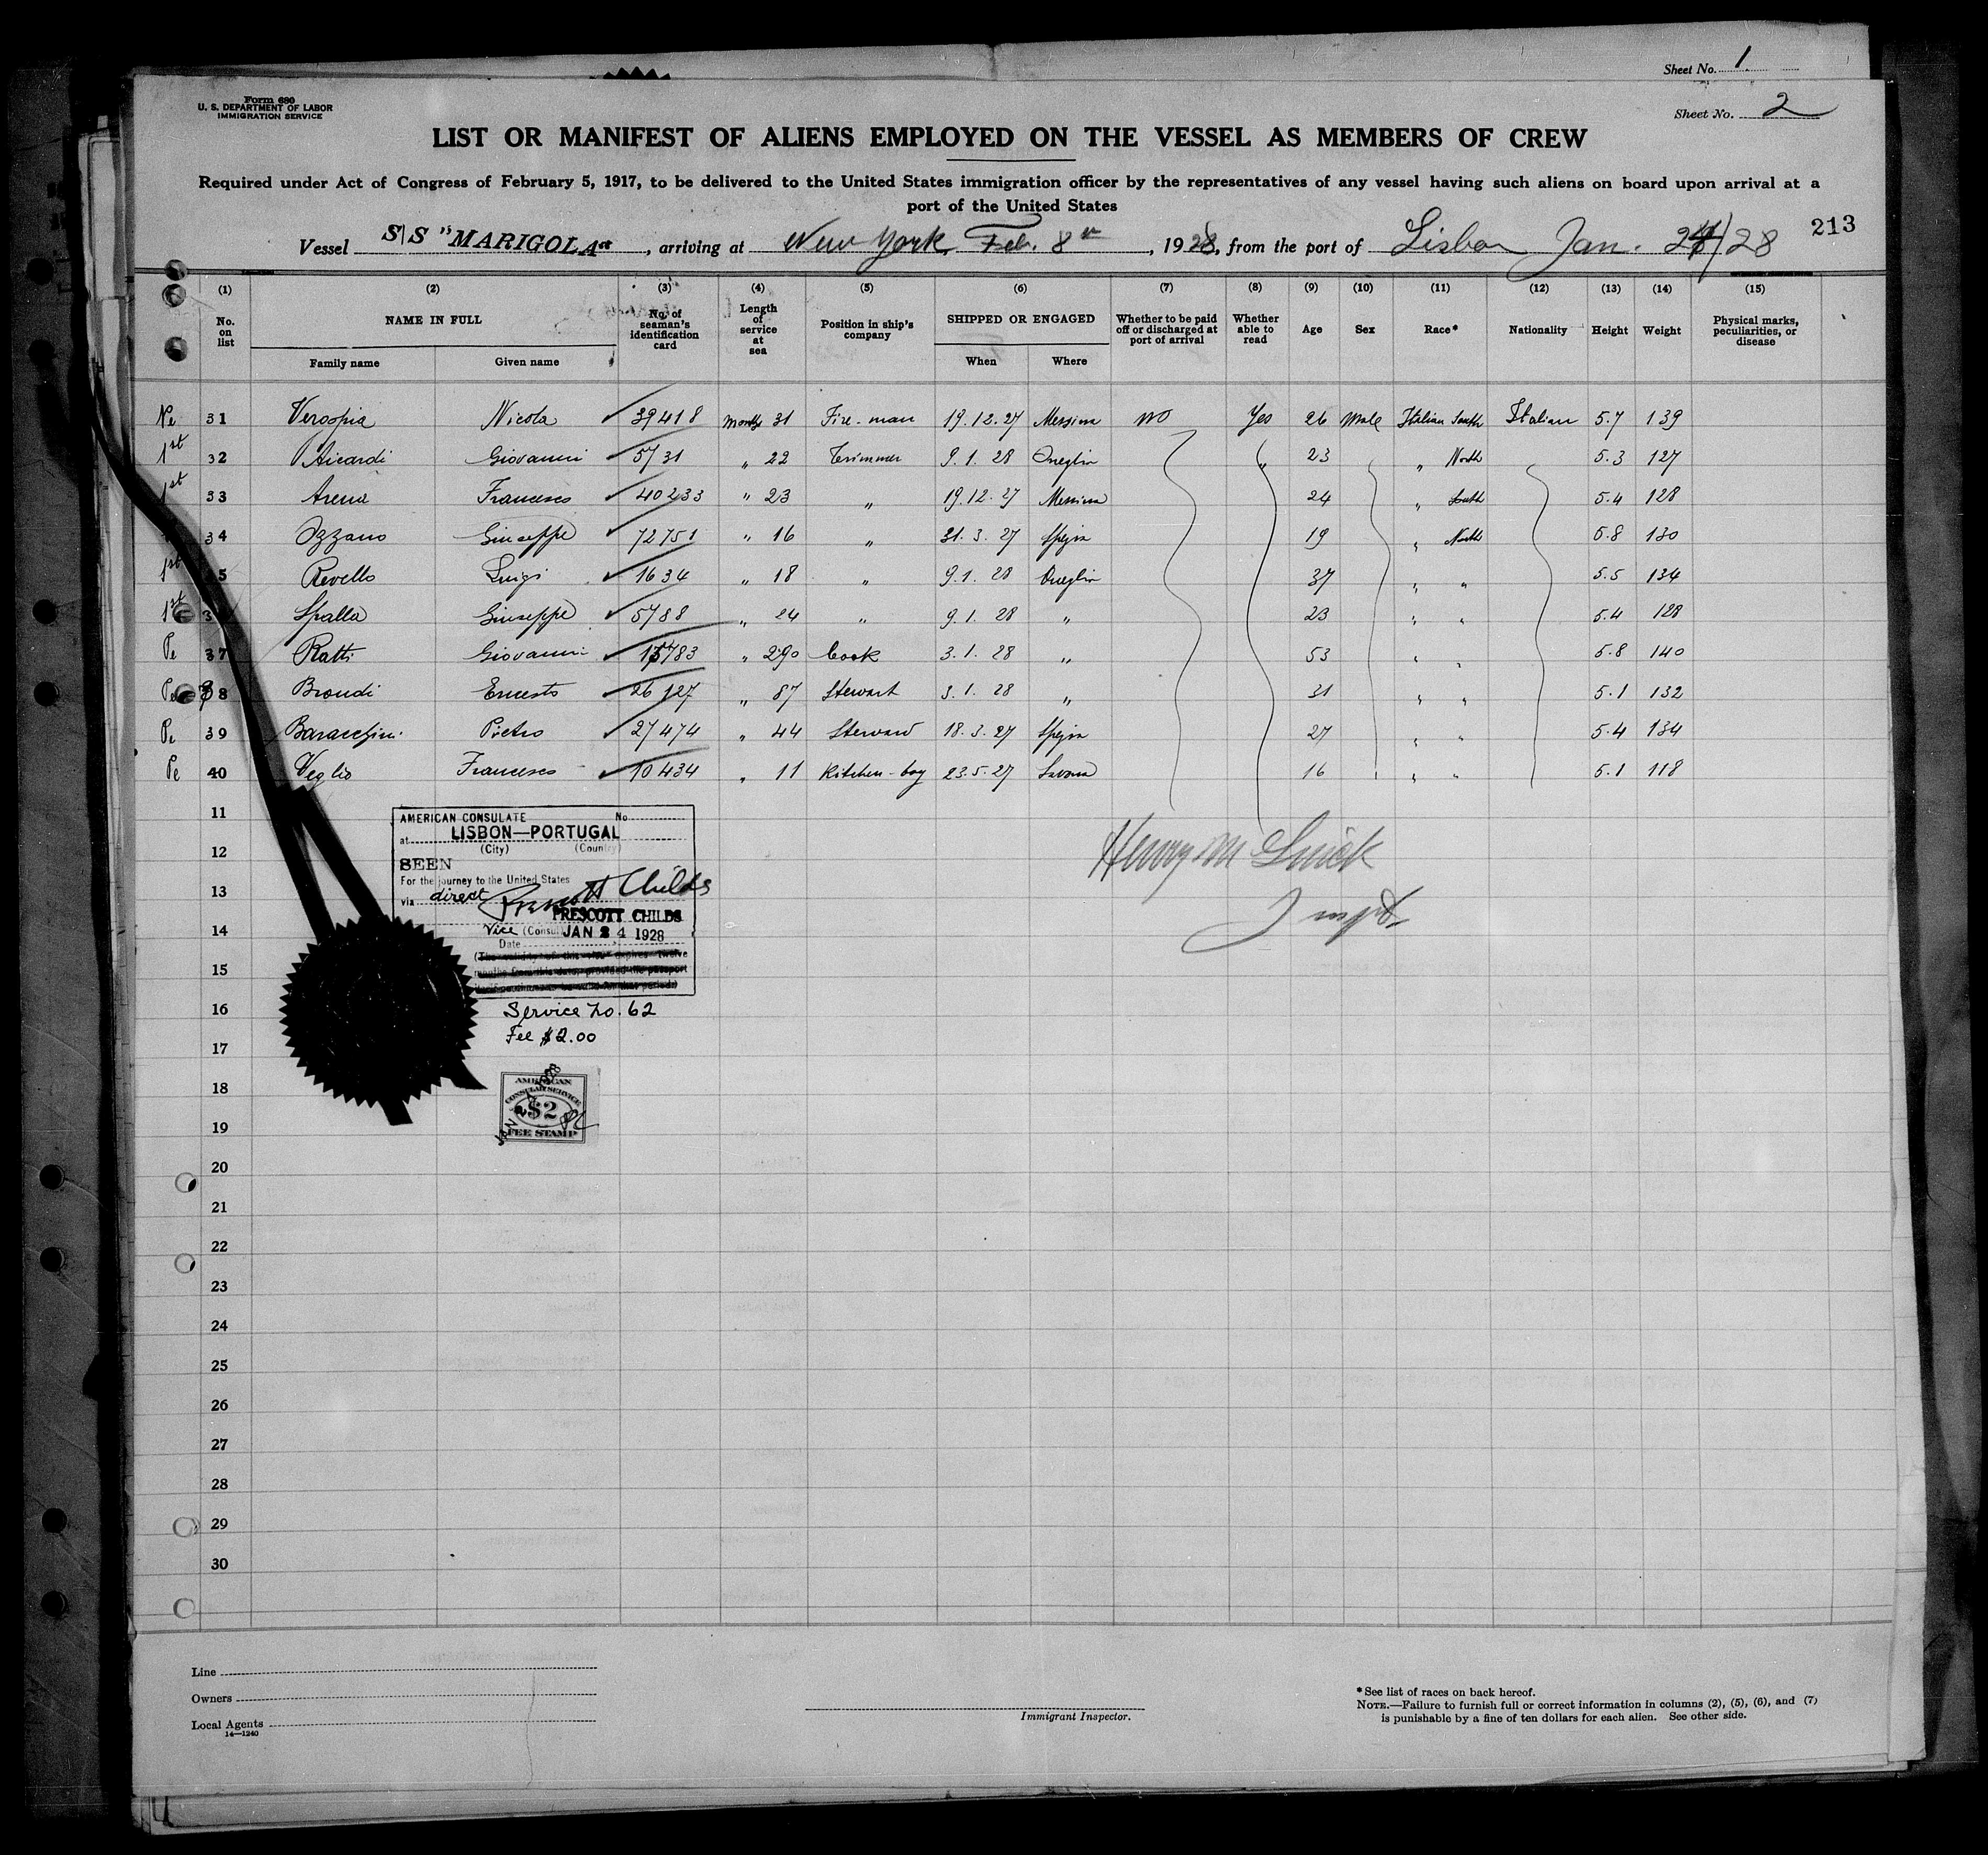 Sheet No. 1
Form 680
U. S. DEPARTMENT OF LABOR
IMMIGRATION SERVICE
Sheet No. 2
LIST OR MANIFEST OF ALIENS EMPLOYED ON THE VESSEL AS MEMBERS OF CREW
Required under Act of Congress of February 5, 1917, to be delivered to the United States immigration officer by the representatives of any vessel having such aliens on board upon arrival at a
port of the United States
213
Vessel S/S "MARIGOLA", arriving at New York, Feb. 8th, 1928, from the port of Lisbon Jan. 24/28
(1) (2) (3) (4) (5) (6) (7) (8) (9) (10) (11) (12) (13) (14) (15)
No. on list NAME IN FULL No. of seaman's identification card Length of service at sea Position in ship's company SHIPPED OR ENGAGED Whether to be paid off or discharged at port of arrival Whether able to read Age Sex Race* Nationality Height Weight Physical marks, peculiarities, or disease
Family name Given name When Where
31 Nicola 39418 months 31 Fire-man 19.12.27 Messina no Yes 26 male Italian South Italian 5.7 139
1st 32 Aicardi Giovanni 5731 " 22 Trimmer 9.1.28 Oneglia " 23 " North 5.3 127
1st 33 Arena Francesco 40233 " 23 " 19.12.27 Messina 24 " South 5.4 128
34 Ozzano Giuseppe 72751 " 16 " 31.3.27 Spezia 19 " North 5.8 130
1st 35 Revello Luigi 1634 " 18 " 9.1.28 Oneglia 37 " " 5.5 134
1st 36 Spalla Giuseppe 5788 " 24 " 9.1.28 " 23 " " 5.4 128
Pe 37 Ratti Giovanni 15783 " 290 Cook 3.1.28 " 53 " " 5.8 140
Pe 38 Brondi Ernesto 26127 " 87 Stewart 3.1.28 " 31 " " 5.1 132
Pe 39 Baracchini Pietro 27474 " 44 Steward 18.3.27 Spezia 27 " " 5.4 134
Pe 40 Veglio Francesco 10434 " 11 Kitchen-boy 23.5.27 Savona 16 " " 5.1 118
11
12
13
14
15
16
17
18
19
20
21
22
23
24
25
26
27
28
29
30
AMERICAN CONSULATE No.
at LISBON—PORTUGAL
(City) (Country)
SEEN
For the journey to the United States
via direct Prescott Childs
PRESCOTT CHILDS
Vice (Consul) JAN 24 1928
Date
(The validity of this visa expires twelve
months from this date, provided the passport
Service No. 62
Fee $2.00
AMERICAN
CONSULAR SERVICE
$2
FEE STAMP
Henry M
Inspt
Line
Owners
Local Agents
14—1240
Immigrant Inspector.
*See list of races on back hereof.
NOTE.—Failure to furnish full or correct information in columns (2), (5), (6), and (7)
is punishable by a fine of ten dollars for each alien. See other side.